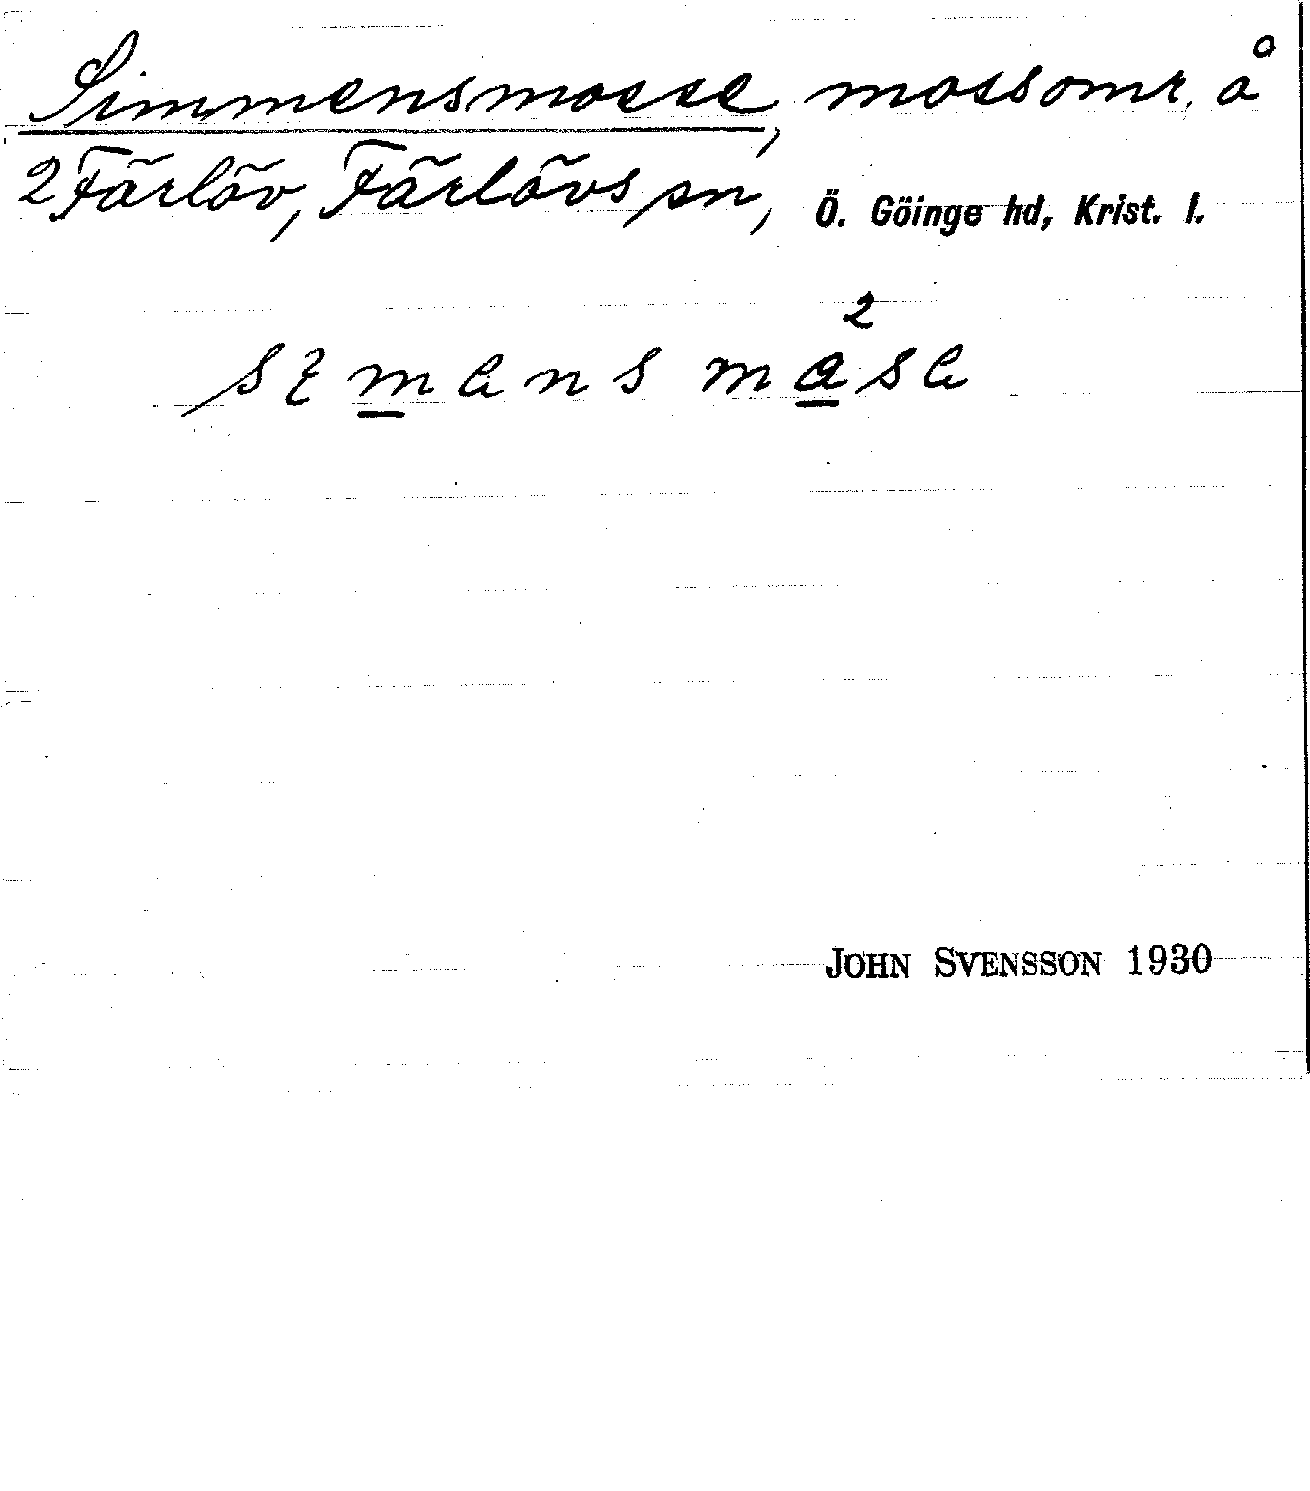 Simmensmosse, mossomr. å
2 Färlöv, Färlövs sn, Ö. Göinge hd, Krist. l.
JOHN SVENSSON 1930